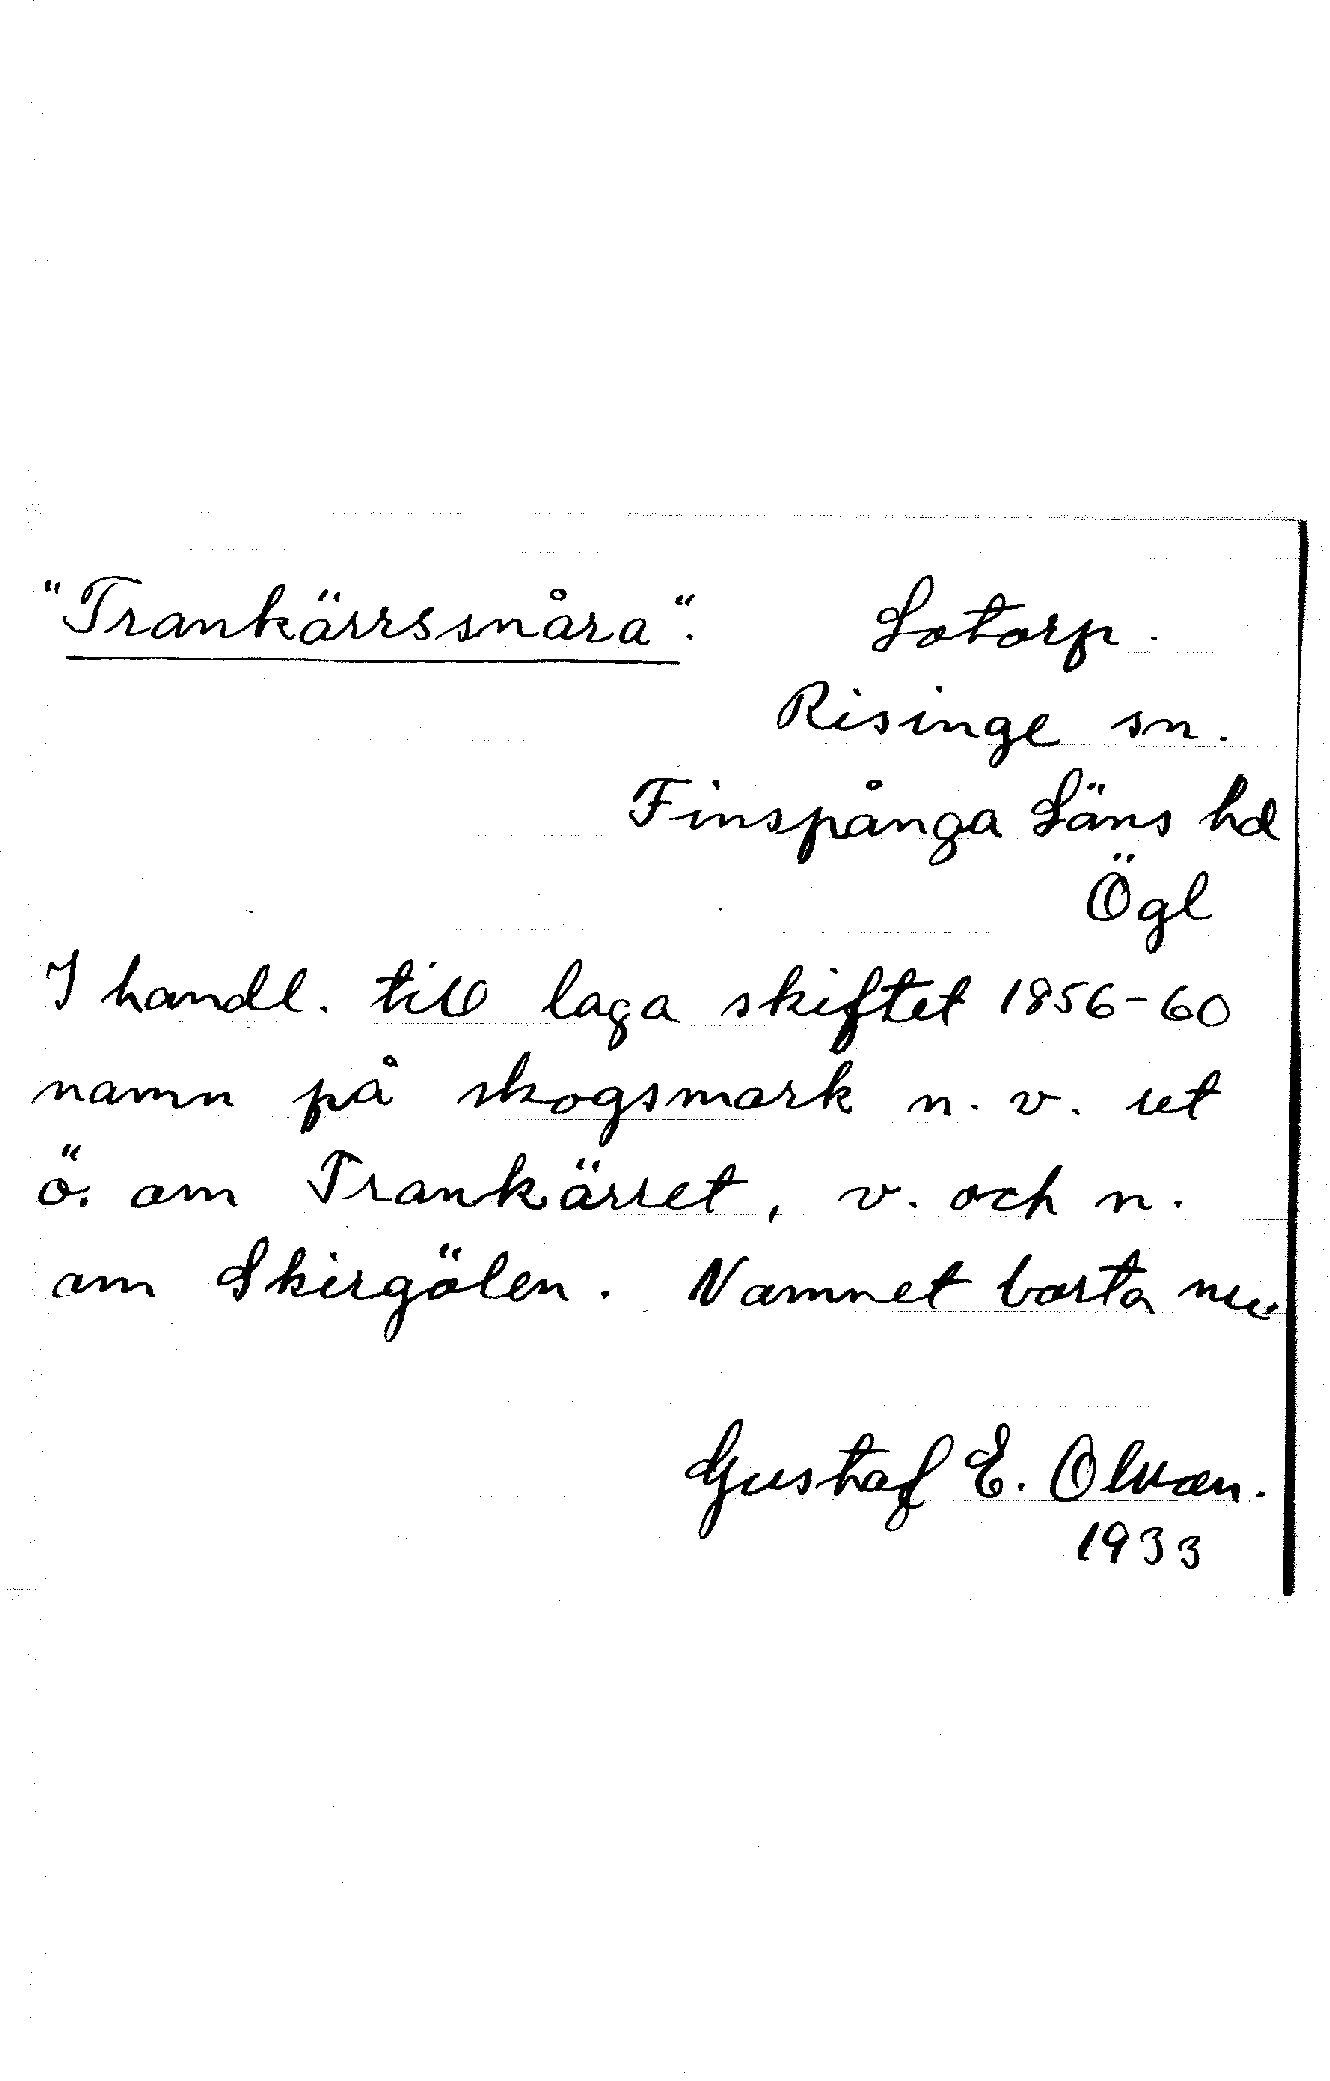 "Trankärrssnåra". Lotorp.
Risinge sn.
Finspånga Läns hd
Ögl
I handl. till laga skiftet 1856-60
namn på skogsmark n. v. ut
ö. om Trankärret, v. och n.
om Skirgölen. Namnet borta nu
Gustaf E. Olvæn.
1933